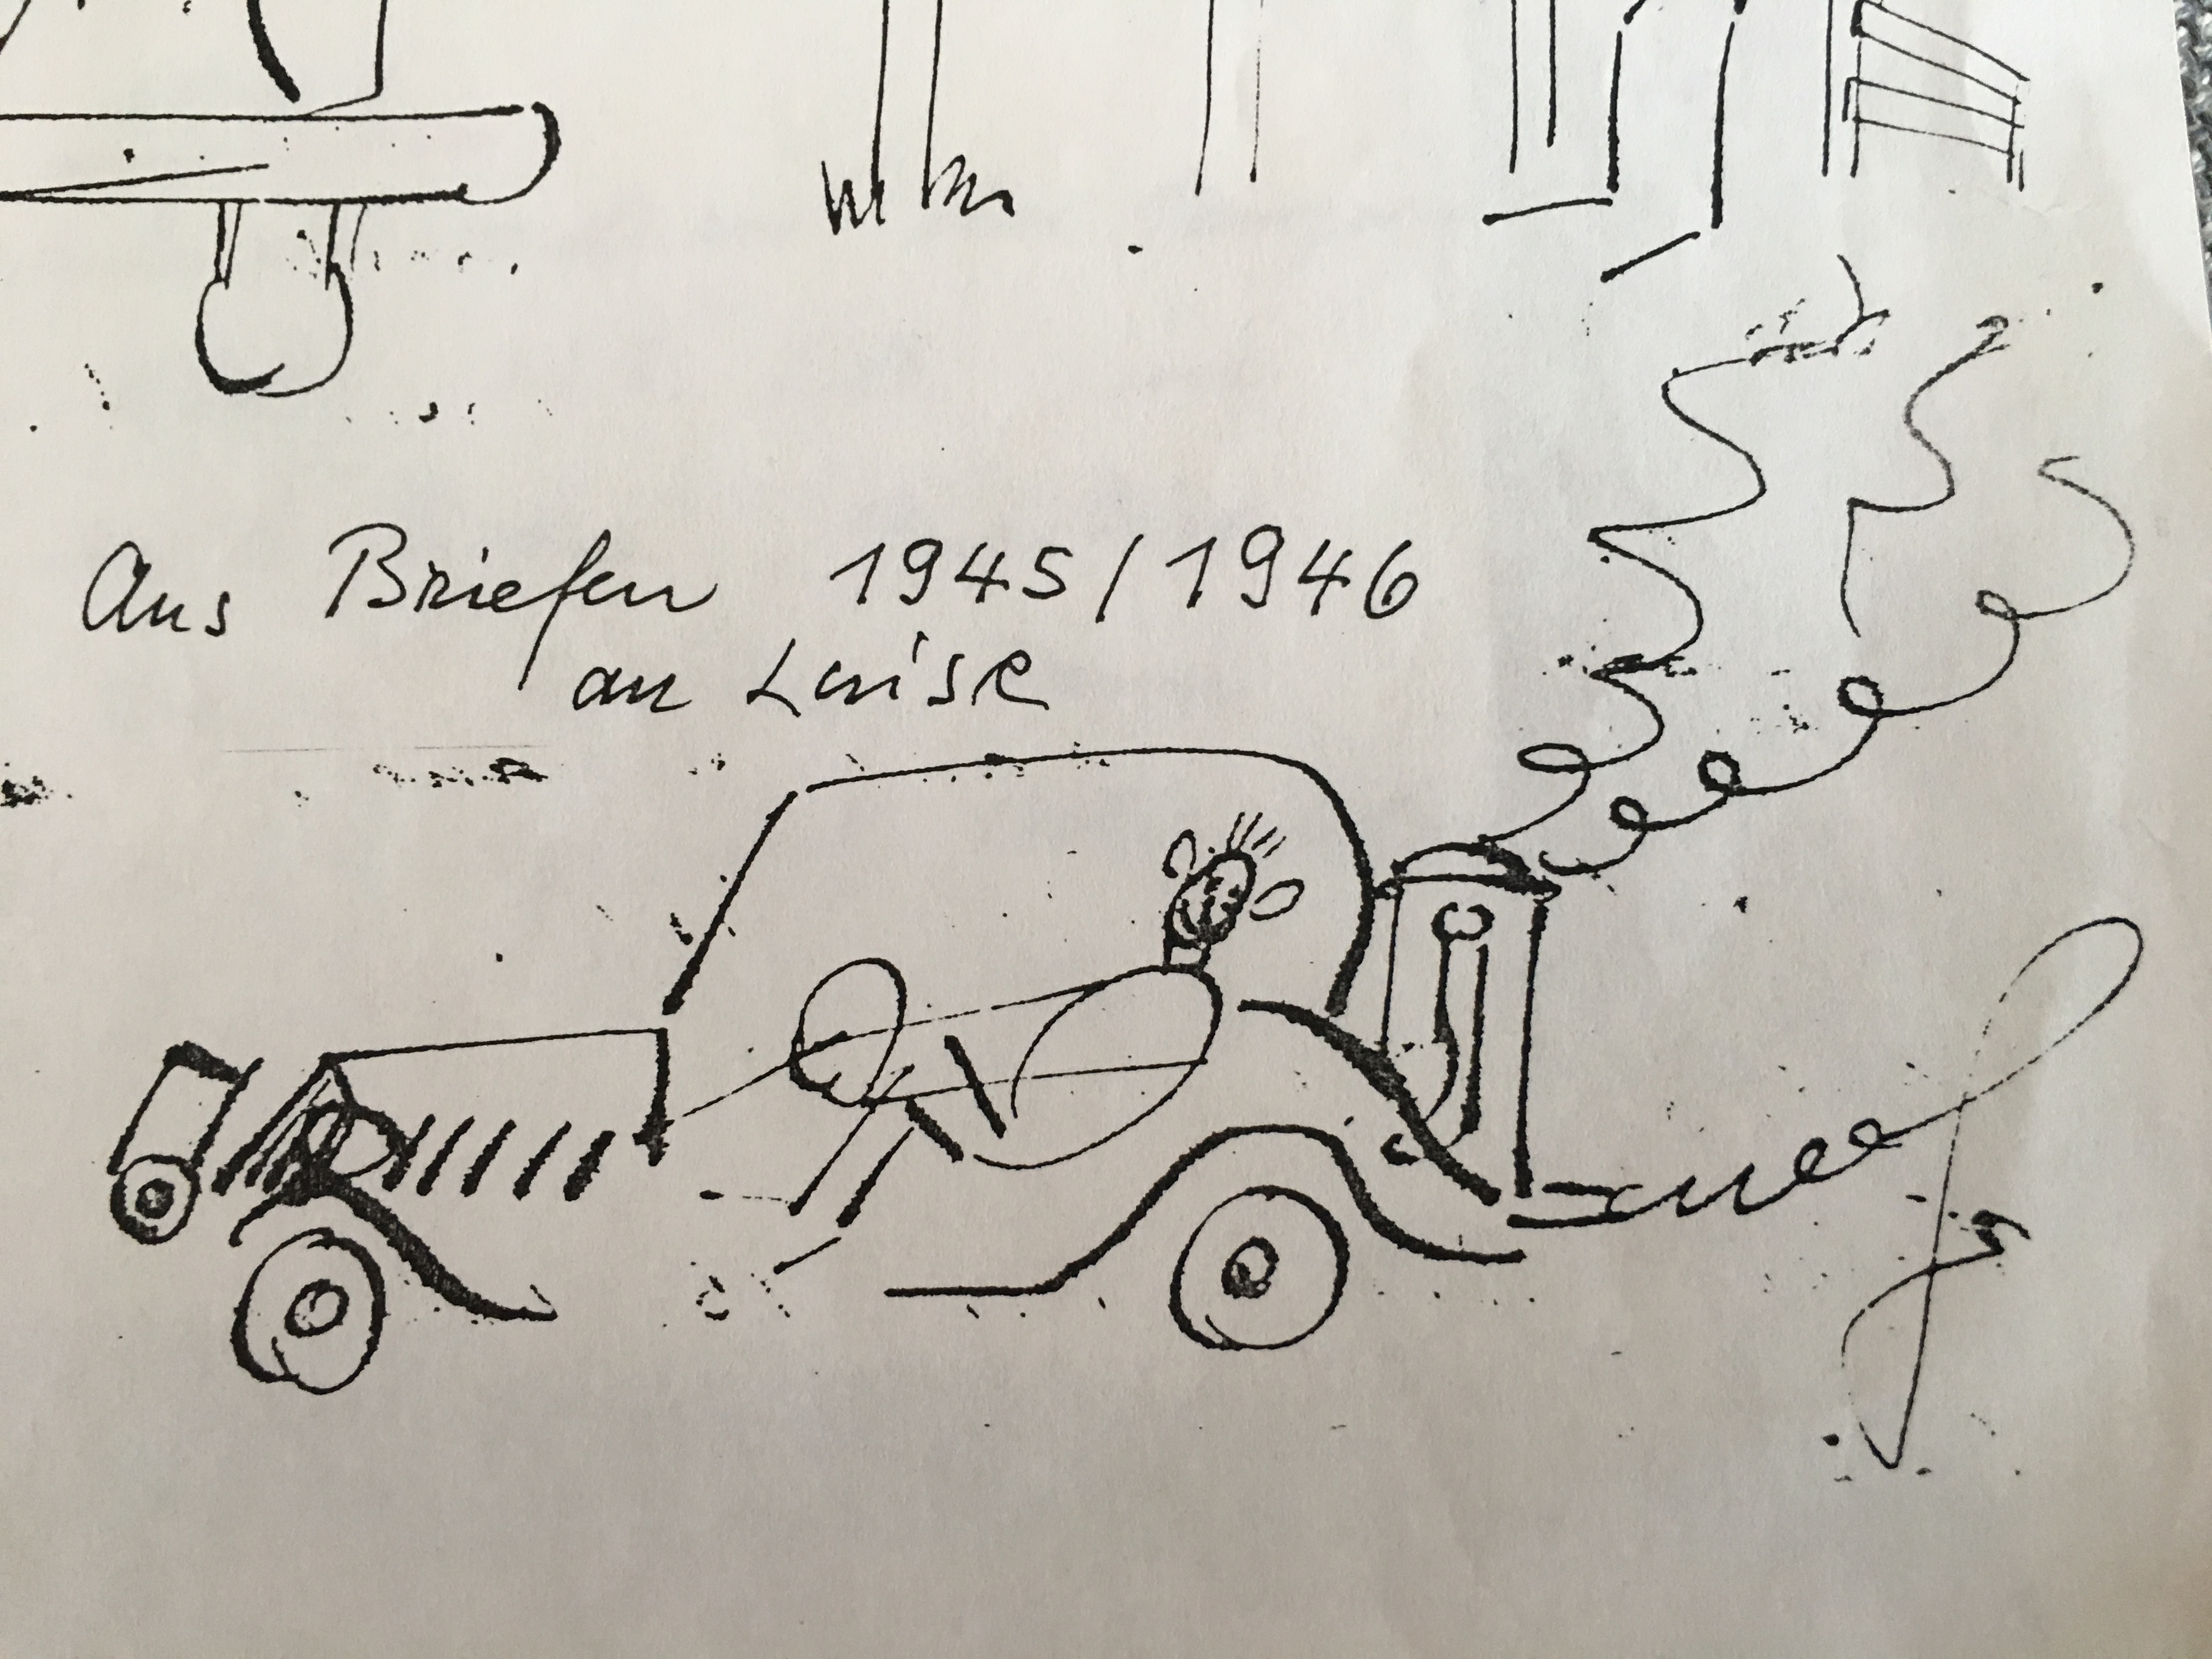 Aus Briefen 1945/1946
an Luise